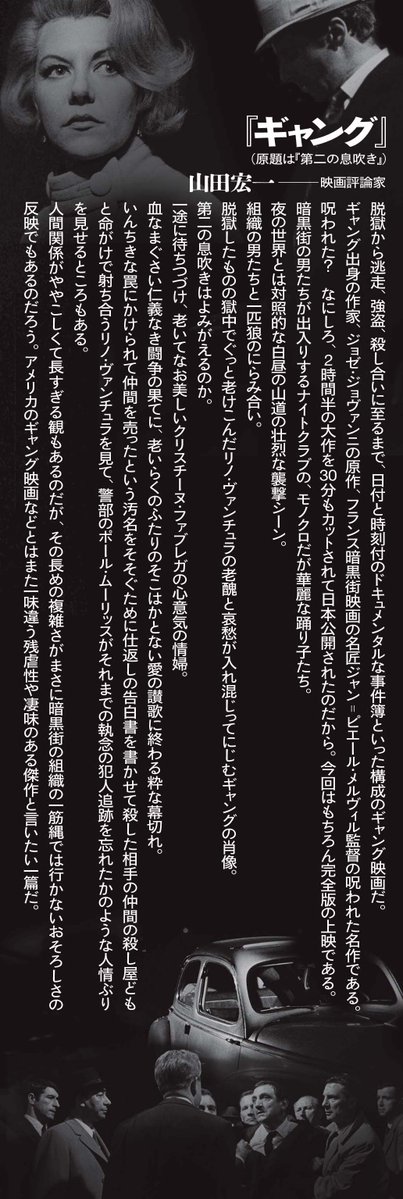 『ギャング』
（原題は『第二の息吹き』）
山田宏一――映画評論家
脱獄から逃走、強盗、殺し合いに至るまで、日付と時刻付のドキュメンタルな事件簿といった構成のギャング映画だ。
ギャング出身の作家、ジョゼ・ジョヴァンニの原作、フランス暗黒街映画の名匠ジャン＝ピエール・メルヴィル監督の呪われた名作である。
呪われた？　なにしろ、2時間半の大作を30分もカットされて日本公開されたのだから。今回はもちろん完全版の上映である。
暗黒街の男たちが出入りするナイトクラブの、モノクロだが華麗な踊り子たち。
夜の世界とは対照的な白昼の山道の壮烈な襲撃シーン。
組織の男たちと一匹狼のにらみ合い。
脱獄したものの獄中でぐっと老けこんだリノ・ヴァンチュラの老醜と哀愁が入れ混じってにじむギャングの肖像。
第二の息吹きはよみがえるのか。
一途に待ちつづけ、老いてなお美しいクリスチーヌ・ファブレガの心意気の情婦。
血なまぐさい仁義なき闘争の果てに、老いらくのふたりのそこはかとない愛の讃歌に終わる粋な幕切れ。
いんちきな罠にかけられて仲間を売ったという汚名をそそぐために仕返しの告白書を書かせて殺した相手の仲間の殺し屋ども
と命がけで射ち合うリノ・ヴァンチュラを見て、警部のポール・ムーリッスがそれまでの執念の犯人追跡を忘れたかのような人情ぶり
を見せるところもある。
人間関係がややこしくて長すぎる観もあるのだが、その長めの複雑さがまさに暗黒街の組織の一筋縄では行かないおそろしさの
反映でもあるのだろう。アメリカのギャング映画などとはまた一味違う残虐性や凄味のある傑作と言いたい一篇だ。